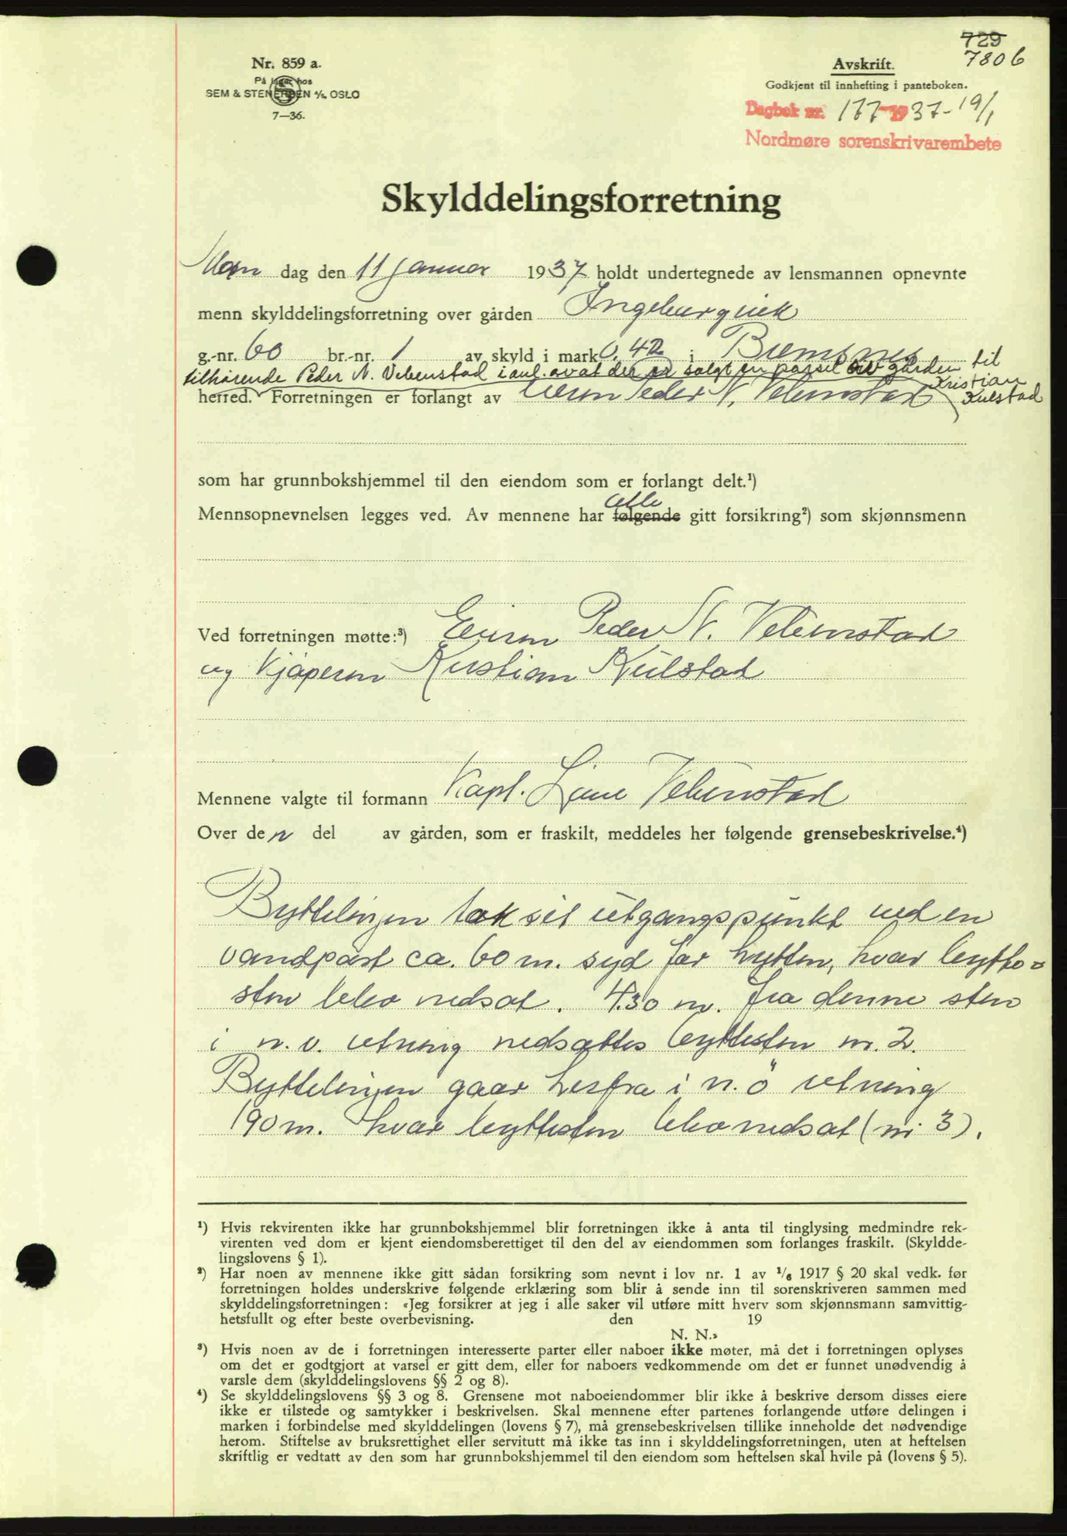 729
7806
Nr. 859 a.
På lager hos
SEM & STENERSEN A/S, OSLO
7—36.
Avskrift.
Godkjent til innhefting i panteboken.
Dagbok nr. 177-1937-19/1
Nordmøre sorenskrivarembete
Skylddelingsforretning
Man dag den 11 januar 1937 holdt undertegnede av lensmannen opnevnte
menn skylddelingsforretning over gården Ingeburgvik
g.-nr. 60 br.-nr. 1 av skyld i mark 0.42 i Bremsnes
tilhørende Peder N. Vebenstad i anl. av at der er solgt en parsel av gården til
Kristian
Kulstad
herred. Forretningen er forlangt av Eieren Peder N. Vebenstad
som har grunnbokshjemmel til den eiendom som er forlangt delt.¹)
alle
Mennsopnevnelsen legges ved. Av mennene har følgende gitt forsikring²) som skjønnsmenn
Ved forretningen møtte:³) Eieren Peder N. Vebenstad
og kjøperen Kristian Kulstad
Mennene valgte til formann Kapt. Vebenstad
Over den del av gården, som er fraskilt, meddeles her følgende grensebeskrivelse.⁴)
Byttelinjen tok sit utgangspunkt ved en
vandpøst ca. 60 m. syd for hytten, hvor bytte=
sten blev nedsat. 430 m. fra denne sten
i n.v. retning nedsattes byttesten nr. 2.
Byttelinjen gaar herfra i n.ö retning
190 m. hvor byttesten blev nedsat (nr. 3).
¹) Hvis rekvirenten ikke har grunnbokshjemmel blir forretningen ikke å anta til tinglysing medmindre rek-
virenten ved dom er kjent eiendomsberettiget til den del av eiendommen som forlanges fraskilt. (Skyldde-
lingslovens § 1).
²) Har noen av mennene ikke gitt sådan forsikring som nevnt i lov nr. 1 av 1/6 1917 § 20 skal vedk. før
forretningen holdes underskrive følgende erklæring som blir å sende inn til sorenskriveren sammen med
skylddelingsforretningen: «Jeg forsikrer at jeg i alle saker vil utføre mitt hverv som skjønnsmann samvittig-
hetsfullt og efter beste overbevisning. den 19
N. N.»
³) Hvis noen av de i forretningen interesserte parter eller naboer ikke møter, må det i forretningen oplyses
om det er godtgjort at varsel er gitt dem, eller for naboers vedkommende om det er funnet unødvendig å
varsle dem (skylddelingslovens §§ 2 og 8).
⁴) Se skylddelingslovens §§ 3 og 8. Grensene mot naboeiendommer blir ikke å beskrive dersom disses eiere
ikke er tilstede og samtykker i beskrivelsen. Skal mennene efter partenes forlangende utføre delingen i
marken i forbindelse med skylddelingen (lovens § 7), må grensebeskrivelsen tillike inneholde det nødvendige
herom. Stiftelse av bruksrettighet eller servitutt må ikke tas inn i skylddelingsforretningen, uten at heftelsen
skriftlig er vedtatt av den som har grunnbokshjemmel til den eiendom som heftelsen skal hvile på (lovens § 5).